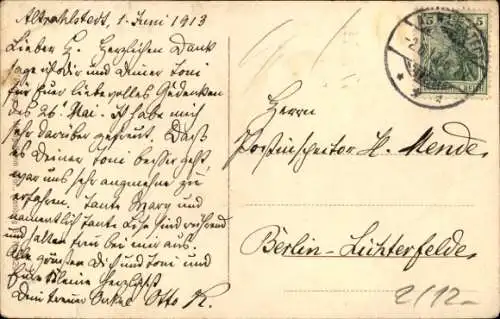 Altrahlstedt, 1. Juni 1913
Lieber H. Herzlichen Dank
sage ich dir und deiner Toni
für Euer liebevolles Gedenken
des 26' Mai. Ich habe mich
sehr darüber gefreut. Daß
es deiner Toni besser geht
war uns sehr angenehm zu
erfahren. Tante Mary und
namentlich Tante Lise sind rührend
und halten treu bei mir aus.
Alle grüßen Dich und Toni und
Eure Kleine herzlichst
Dein treuer Onkel Otto K.
5 5
Herrn
Postinspektor H. Mende
Berlin-Lichterfelde
2/12-